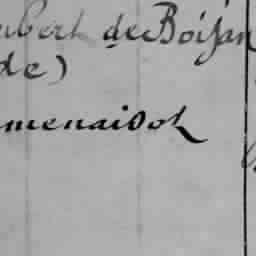 ubert de Boisan
de)
menaidoh